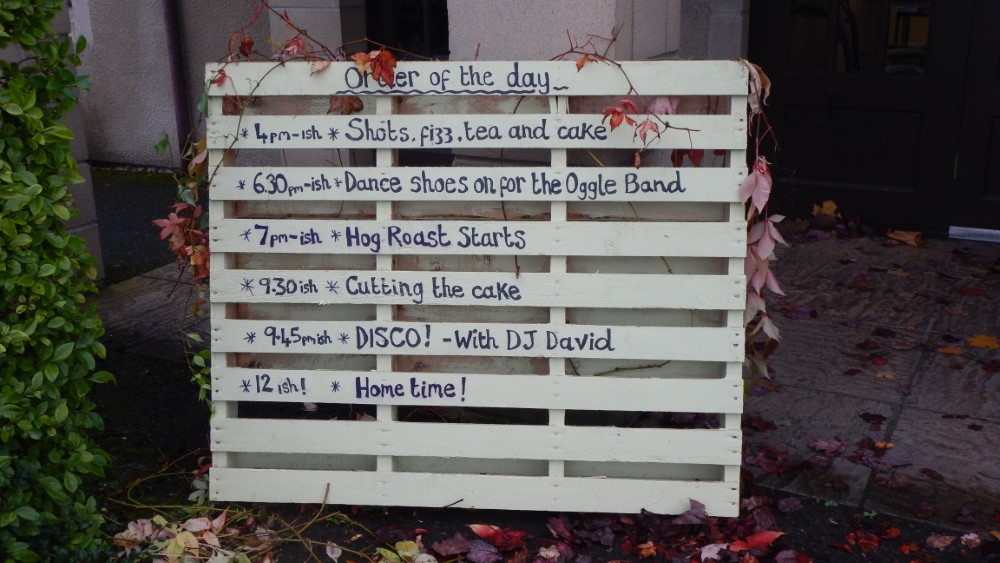 Order of the day
* 4pm-ish * Shots, fizz, tea and cake
* 6.30pm-ish * Dance shoes on for the Oggle Band
* 7pm-ish * Hog Roast Starts
* 9.30ish * Cutting the cake
* 9.45pmish * DISCO! - With DJ David
* 12 ish! * Home time!